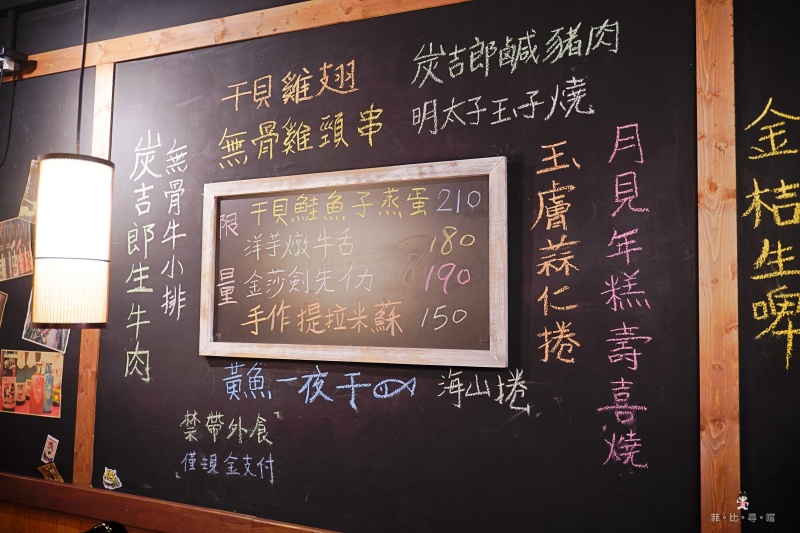 炭吉郎鹹豬肉
明太子玉子燒
干貝雞翅
無骨雞頸串
無骨牛小排
炭吉郎生牛肉
限量
干貝鮭魚子蒸蛋 210
洋芋燉牛舌 180
金莎劍先イカ 190
手作提拉米蘇 150
玉膚蒜仁捲
月見年糕壽喜燒
金桔生啤
黃魚一夜干
海山捲
禁帶外食
僅現金支付
菲。比。尋。嚐